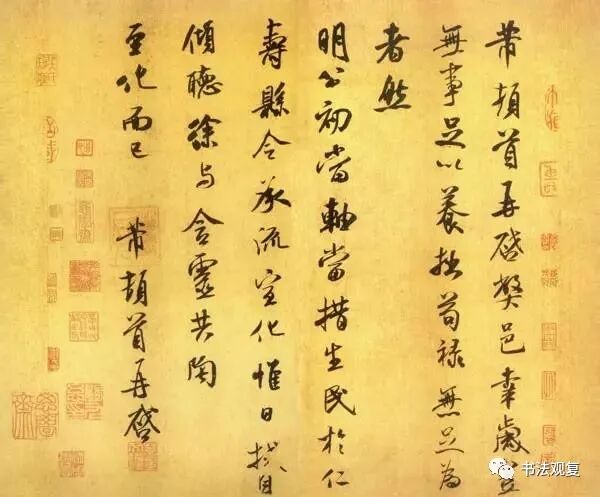 芾頓首再啓弊邑幸歲豐
無事足以養拙苟禄無足為
者然
明公初當軸當措生民於仁
壽縣令承流宣化惟日拭目
傾聽徐与含靈共陶
至化而已 芾頓首再啓
书法观复